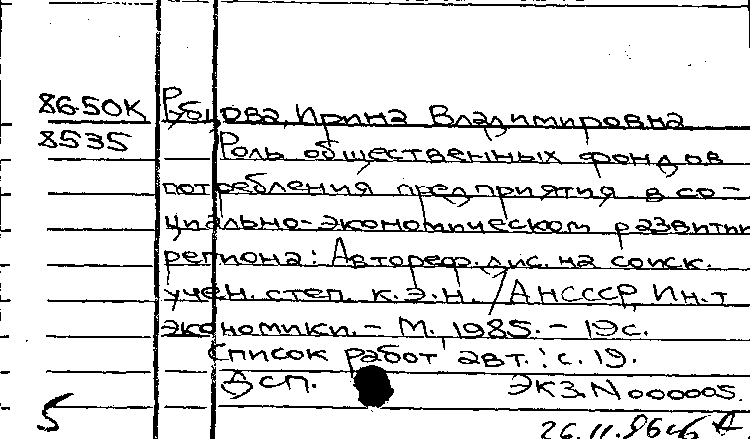 86-50К Рубцова, Ирина Владимировна
8535 Роль общественных фондов
потребления предприятия в со-
циально-экономическом развитии
региона: Автореф. дис. на соиск.
учен. степ. к.э.н. / АН СССР, Ин-т
экономики. - М., 1985. - 19 с.
Список работ авт.: с. 19.
ДСП. Экз. N 000005.
5 26.11.86